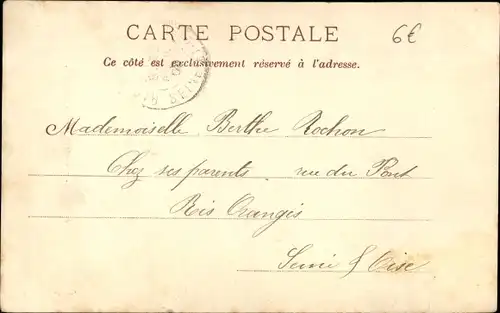 CARTE POSTALE
6€
Ce côté est exclusivement réservé à l'adresse.
Mademoiselle Berthe Rochon
Chez ses parents rue du Pont
Ris Orangis
Seine & Oise